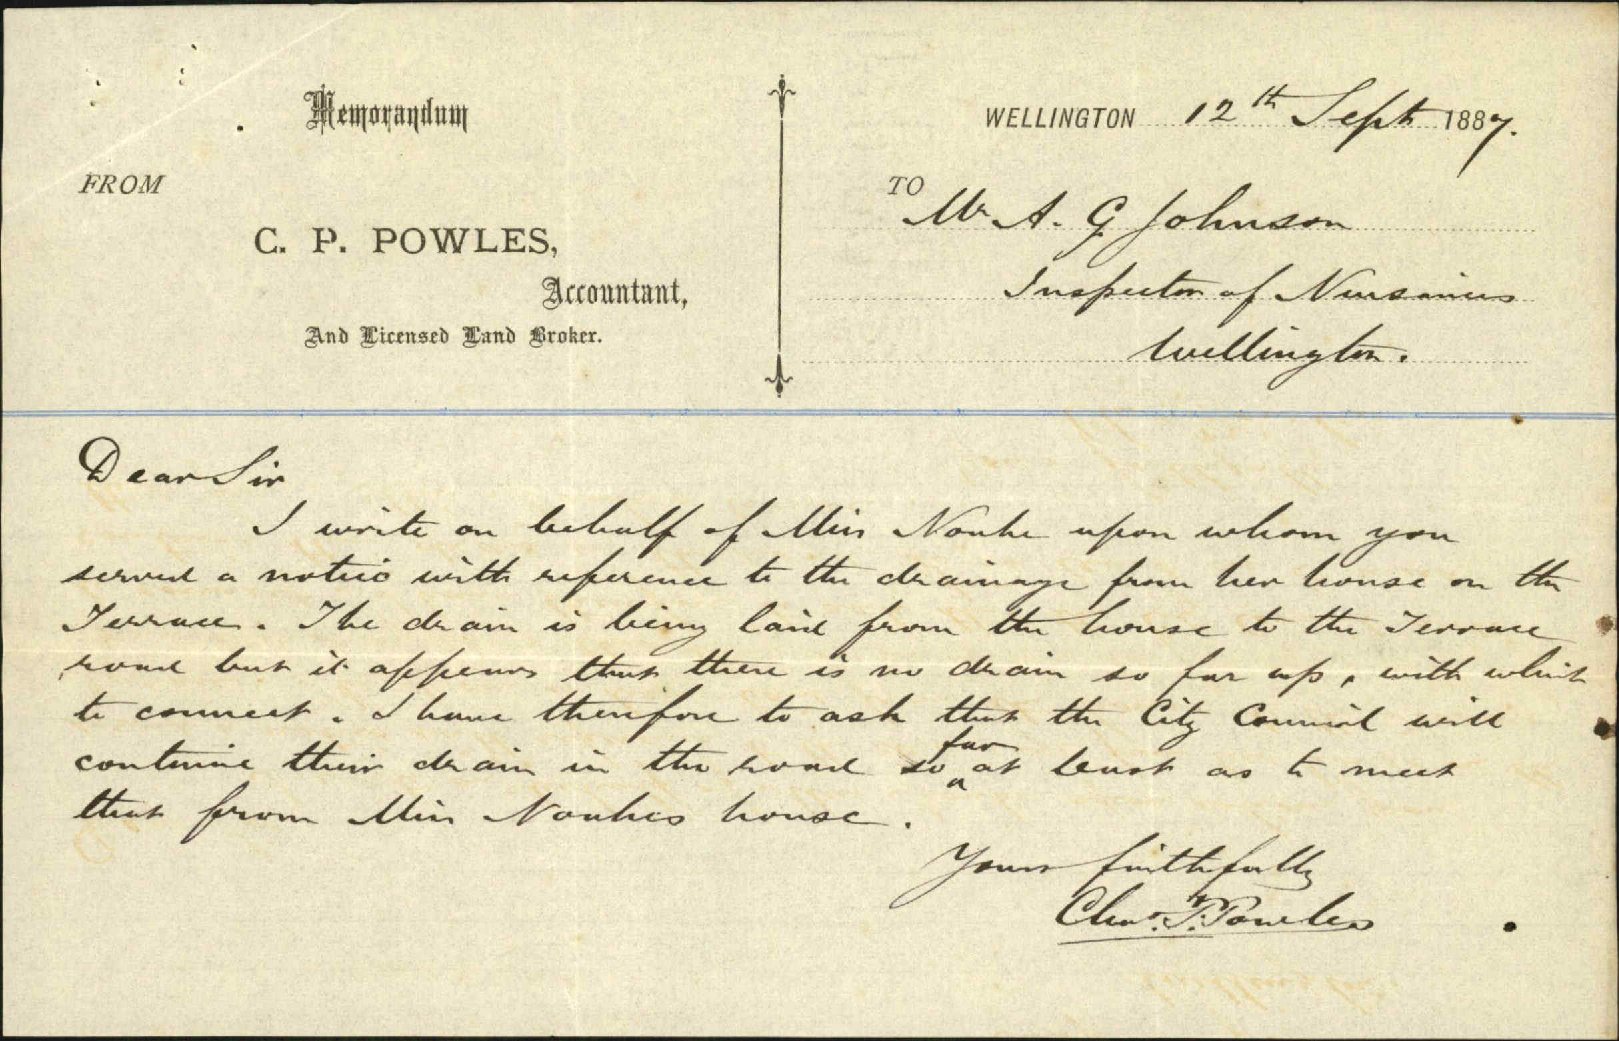 Memorandum
WELLINGTON 12th Sept 1887.
FROM
TO
Mr A. G Johnson
C. P. POWLES,
Accountant,
Inspector of Nusances
And Licensed Land Broker.
Wellington.
Dear Sir
I write on behalf of Miss upon whom you
served a notice with reference to the drainage from her house on the
Terrace. The drain is being laid from the house to the Terrace
road but it appears that there is no drain so far up, with which
to connect. I have therefore to ask that the City Council will
continue their drain in the road so far at least as to meet
that from Miss house.
Yours faithfully
Chas. P. Powles